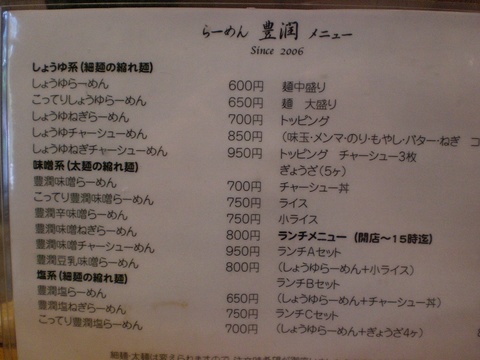 らーめん 豊潤 メニュー
Since 2006
しょうゆ系(細麺の縮れ麺)
しょうゆらーめん 600円
こってりしょうゆらーめん 650円
しょうゆねぎらーめん 700円
しょうゆチャーシューめん 850円
しょうゆねぎチャーシューめん 950円
味噌系(太麺の縮れ麺)
豊潤味噌らーめん 700円
こってり豊潤味噌らーめん 750円
豊潤辛味噌らーめん 750円
豊潤味噌ねぎらーめん 800円
豊潤味噌チャーシューめん 950円
豊潤豆乳味噌らーめん 800円
塩系(細麺の縮れ麺)
豊潤塩らーめん 650円
豊潤塩ねぎらーめん 750円
こってり豊潤塩らーめん 700円
麺中盛り
麺 大盛り
トッピング
(味玉・メンマ・のり・もやし・バター・ねぎ コ
トッピング チャーシュー3枚
ぎょうざ(5ヶ)
チャーシュー丼
ライス
小ライス
ランチメニュー (開店〜15時迄)
ランチAセット
(しょうゆらーめん+小ライス)
ランチBセット
(しょうゆらーめん+チャーシュー丼)
ランチCセット
(しょうゆらーめん+ぎょうざ4ヶ)